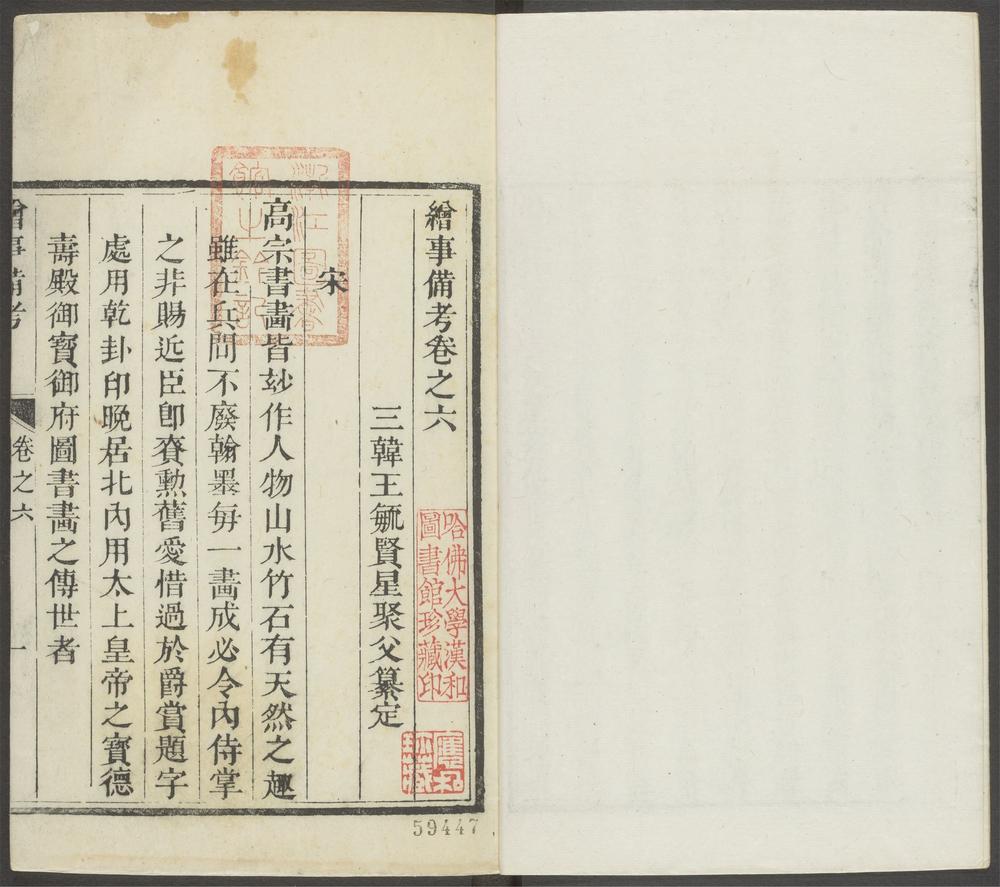 繪事備考卷之六
三韓王毓賢星聚父纂定
宋
高宗書畵皆玅作人物山水竹石有天然之趣
雖在兵間不廢翰墨每一畵成必令內侍掌
之非賜近臣卽賚勲舊愛惜過於爵賞題字
處用乾卦印晚居北內用太上皇帝之寶德
壽殿御寶御府圖書畵之傳世者
繪事備考
卷之六
一
哈佛大學漢和
圖書館珍藏印
59447